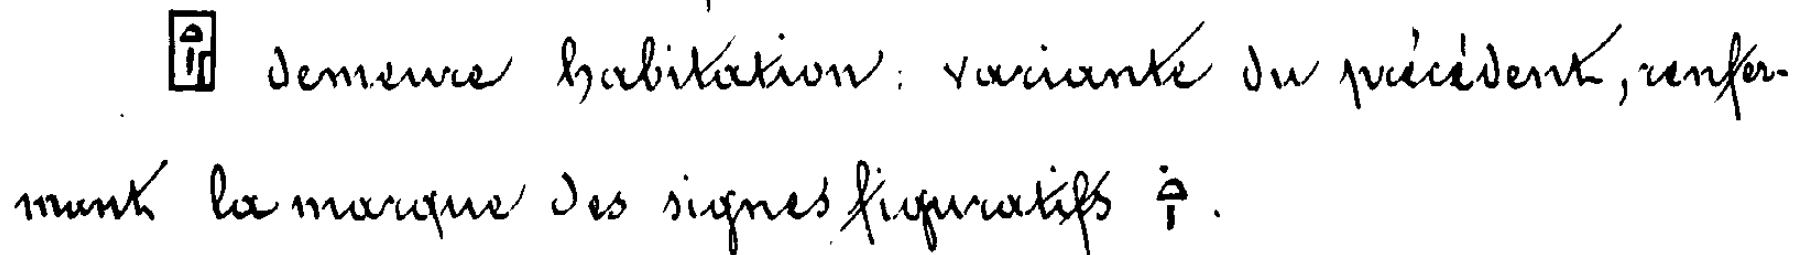 𓉗 demeure habitation : variante du précédent, renfer-
mant la marque des signes figuratifs 𓏏𓏤.